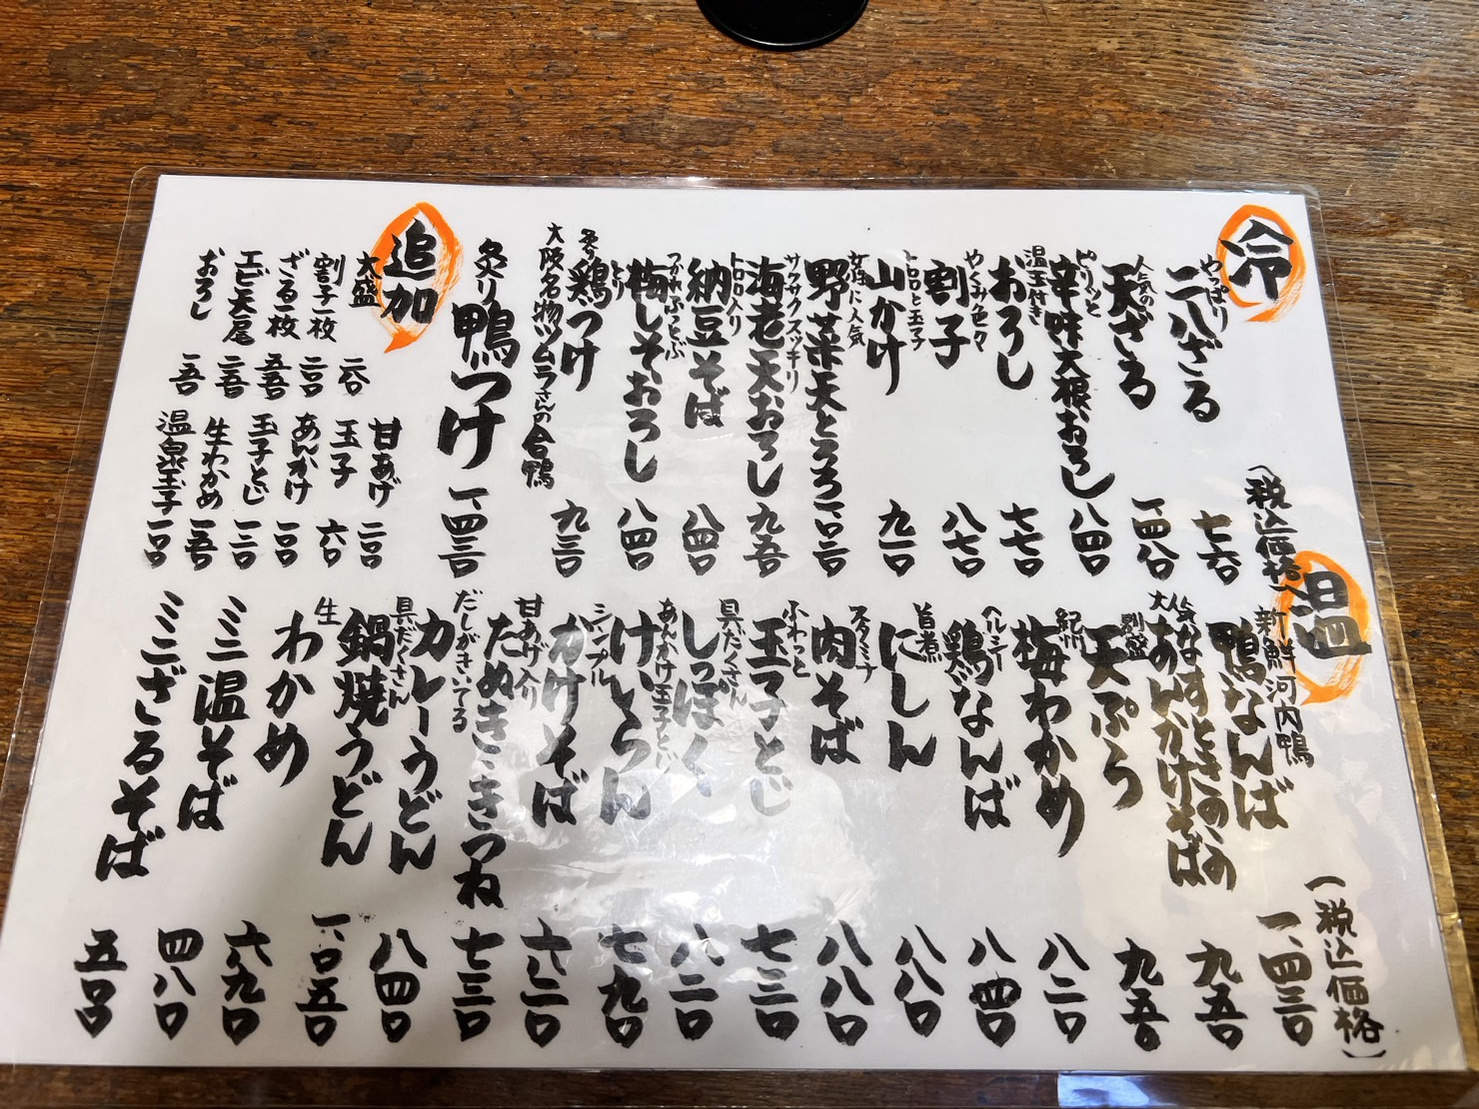 冷
やっぱり
二八ざる 七六〇
人気の
天ざる 一、四八〇
ピリッと
辛味大根おろし 八四〇
温玉付き
おろし 七七〇
やくみ色々
割子 八七〇
トロロと玉子
山かけ
女性に人気
野菜天とろろ
サクサクスッキリ
海老天おろし 九五〇
トロロ入り
納豆そば 八四〇
つかれぶっとぶ
梅しそおろし 八四〇
炙り鶏つけ 九三〇
とり
大阪名物ツムラさんの合鴨
炙り鴨つけ 一、四三〇
(税込価格)
追加
大盛 二六〇
割子一枚 二〇〇
ざる一枚 五五〇
エビ天一尾 二五〇
おろし 一五〇
甘あげ 二〇〇
玉子 六〇
あんかけ 一〇〇
玉子とじ 一三〇
生わかめ 一五〇
温泉玉子 一〇〇
温
(税込価格)
新鮮河内鴨
鴨なんば 一、四三〇
大人気
なすときのこの
あんかけそば 九五〇
別盛
天ぷら 九五〇
紀州
梅わかめ 八二〇
ヘルシー
鶏なんば 八四〇
旨煮
にしん 八八〇
スタミナ
肉そば 八八〇
ふわっと
玉子とじ 七三〇
具だくさん
しっぽく 八二〇
あんかけ玉子とじ
けいらん 七九〇
シンプル
かけそば 六二〇
甘あげ入り
たぬき・きつね 七三〇
だしがきいてる
カレーうどん 八四〇
具だくさん
鍋焼うどん 一、〇五〇
生
わかめ 六九〇
ミニ温そば 四八〇
ミニざるそば 五〇〇